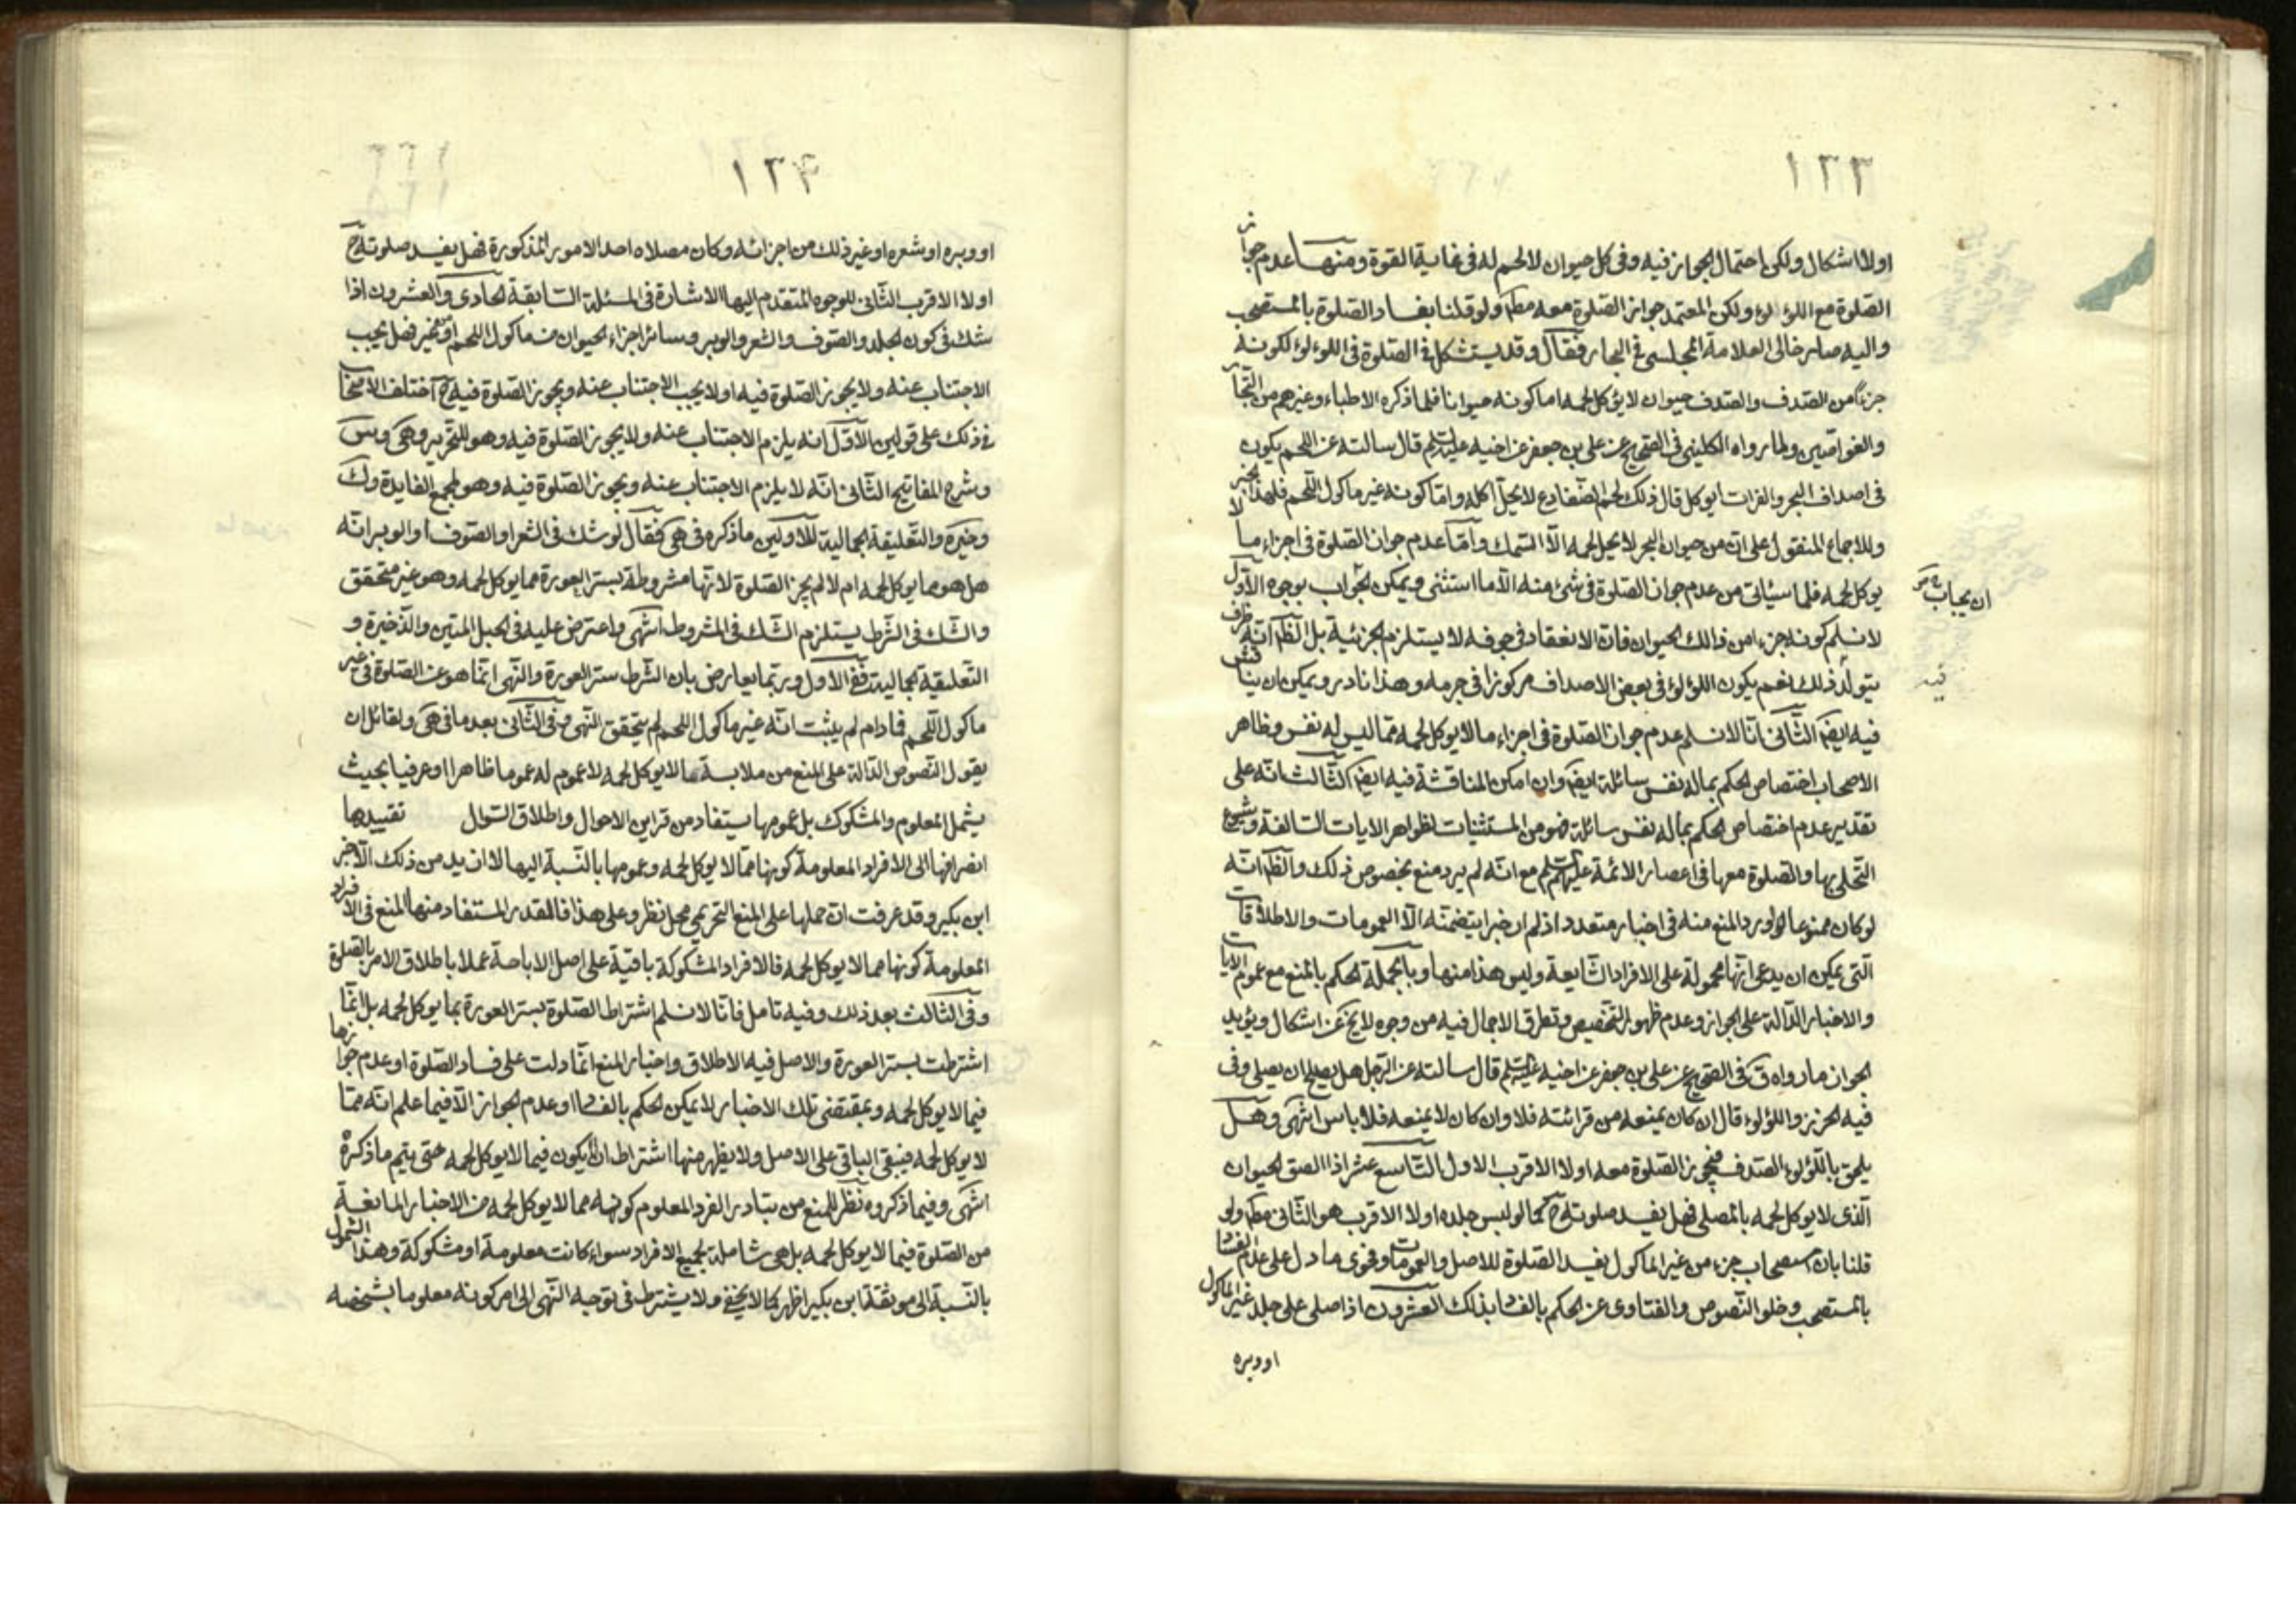 ١٣٣
اولا اشكال ولكن احتمال الجواز فيه وفى كل حيوان لا لحم له فى غاية القوة ومنها عدم جواز
الصلوة مع اللؤلؤ ولكن المعتمد جواز الصلوة معه مطم ولو قلنا بفساد الصلوة بالمستصحب
واليه صار خالى العلامة المجلسى فى البحار فقال وقد يستشكل فى الصلوة فى اللؤلؤ لكونه
جزءا من الصدف والصدف حيوان لا يؤكل لحمه اما كونه حيوانا فلما ذكره الاطباء وغيرهم من التجار
والغواصين ولما رواه الكلينى فى الصحيح عن على بن جعفر عن اخيه عليه السلم قال سالته عن اللحم يكون
فى اصداف البحر والفرات ايوكل قال ذلك لحم الضفادع لا يحل اكله واما كونه غير ماكول اللحم فلهذا الخبر
وللاجماع المنقول على ان من حيوان البحر لا يحل لحمه الا السمك واما عدم جواز الصلوة فى اجزاء ما لا
يوكل لحمه فلما سيأتى من عدم جواز الصلوة فى شئ منه الا ما استثنى ويمكن الجواب بوجوه الاول
ان يجاب
لا نسلم كونه جزءا من ذالك الحيوان فان الانعقاد فى جوفه لا يستلزم الجزئية بل الظ انه ظرف
يتولد ذلك نعم يكون اللؤلؤ فى بعض الاصداف مركوزا فى جرمه وهذا نادر ويمكن ان يناقش
فيه
فيه ايضا الثانى انا لا نسلم عدم جواز الصلوة فى اجزاء ما لا يوكل لحمه مما ليس له نفس وظاهر
الاصحاب اختصاص الحكم بماله نفس سائلة ايضا وان امكن المناقشة فيه ايضا الثالث انه على
تقدير عدم اختصاص الحكم بماله نفس سائلة فهو من المستثنيات لظواهر الايات السالفة وشيوع
التحلى بها والصلوة معها فى اعصار الائمة عليهم السلم مع انه لم يرد منع بخصوص ذلك والظ انه
لو كان ممنوعا لورد المنع منه فى اخبار متعدد اذ لم ار خبرا يتضمنه الا العمومات والاطلاقات
التى يمكن ان يدعى انها محمولة على الافراد الشايعة وليس هذا منها وبالجملة الحكم بالمنع مع عموم الايات
والاخبار الدالة على الجواز وعدم ظهور التخصيص وتطرق الاجمال فيه من وجوه لا يخ عن اشكال ويؤيد
الجواز ما رواه ق فى الصحيح عن على بن جعفر عن اخيه عليه السلم قال سالته عن الرجل هل يصلح ان يصلى وفى
فيه الخرز واللؤلوء قال ان كان يمنعه من قرائته فلا وان كان لا يمنعه فلا باس انتهى وهل
يلحق باللؤلوء الصدف فيجوز الصلوة معه اولا الاقرب الاول التاسع عشر اذا الصق الحيوان
الذى لا يوكل لحمه بالمصلى فهل يفسد صلوته ح كما لو لبس جلده اولا الاقرب هو الثانى مطم ولو
قلنا بان استصحاب جزء من غير الماكول يفسد الصلوة للاصل والعمومات وفحوى ما دل على عدم الفساد
بالمستصحب وخلو النصوص والفتاوى عن الحكم بالفساد بذلك العشرون اذا صلى على جلد غير الماكول
او وبره
١٣۴
او وبره او شعره او غير ذلك من اجزائه وكان مصلاه احد الامور المذكورة فهل يفسد صلوته ح
اولا الاقرب الثانى للوجوه المتقدم اليها الاشارة فى المسئلة السابقة الحادى والعشرون اذا
شك فى كون الجلد والصوف والشعر والوبر وسائر اجزاء الحيوان من ماكول اللحم او من غيره فهل يجب
الاجتناب عنه ولا يجوز الصلوة فيه اولا يجب الاجتناب عنه ويجوز الصلوة فيه ح اختلف الاصحاب
فى ذلك على قولين الاول انه يلزم الاجتناب عنه ولا يجوز الصلوة فيه وهو للتحرير وهى وس
وشرح المفاتيح الثانى انه لا يلزم الاجتناب عنه ويجوز الصلوة فيه وهو لمجمع الفايدة وك
وخيرة والتعليقة الجمالية للاولين ما ذكره فى هى فقال لو شك فى الشعر او الصوف او الوبر انه
هل هو مما يوكل لحمه ام لا لم يجز الصلوة لانها مشروطة بستر العورة مما يوكل لحمه وهو غير متحقق
والشك فى الشرط يستلزم الشك فى المشروط انتهى واعترض عليه فى الحبل المتين والذخيرة و
التعليقة الجمالية ففى الاول وربما يعارض بان الشرط ستر العورة والنهى انما هو عن الصلوة فى غير
ماكول اللحم فما دام لم يثبت انه غير ماكول اللحم لم يتحقق النهى وفى الثانى بعد ما فى هى ولقائل ان
يقول النصوص الدالة على المنع من ملابسة ما لا يوكل لحمه لا عموم له عموما ظاهرا او عرفيا بحيث
يشمل المعلوم والمشكوك بل عمومها يستفاد من قراين الاحوال واطلاق السوال تقييدها
انصرافها الى الافراد المعلومة كونها مما لا يوكل لحمه وعمومها بالنسبة اليها لا ازيد من ذلك الا خبر
ابن بكير وقد عرفت ان حملها على المنع التحريمى محل نظر وعلى هذا فالقدر المستفاد منها المنع فى الافراد
المعلومة كونها مما لا يوكل لحمه فالافراد المشكوكة باقية على اصل الاباحة عملا باطلاق الامر بالصلوة
وفى الثالث بعد ذلك وفيه تامل فانا لا نسلم اشتراط الصلوة بستر العورة بما يوكل لحمه بل انما
اشترطت بستر العورة والاصل فيه الاطلاق واخبار المنع انما دلت على فساد الصلوة او عدم جوازها
فيما لا يوكل لحمه وبمقتضى تلك الاخبار لا يمكن الحكم بالفساد او عدم الجواز الا فيما علم انه مما
لا يوكل لحمه فيبقى الباقى على الاصل ولا يظهر منها اشتراط ان لا يكون فيما لا يوكل لحمه حتى يتم ما ذكره
انتهى وفيما ذكروه نظر للمنع من تبادر الفرد المعلوم كونه مما لا يوكل لحمه من الاخبار المانعة
من الصلوة فيما لا يوكل لحمه بل هى شاملة لجميع الافراد سواء كانت معلومة او مشكوكة وهذا الشمول
بالنسبة الى موثقة ابن بكير اظهر كما لا يخفى ولا يشترط فى توجيه النهى الى امر كونه معلوما بشخصه